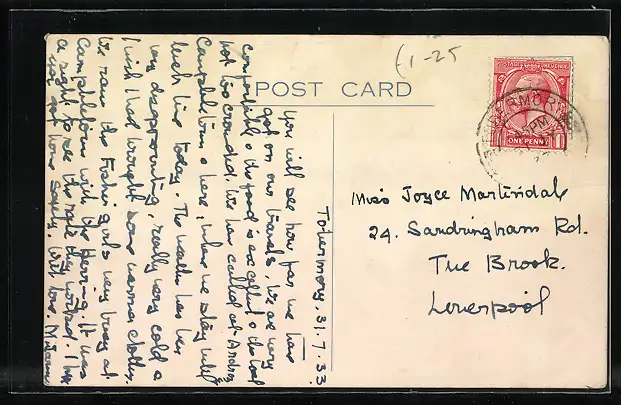 (1-25
POSTAGE REVENUE
ONE PENNY
POST CARD
Tobermory. 31.7.33
You will see how far we have
got on our travels, we are very
comfortable & the food is excellent & the boat
not too crowded. We have called at
Campbeltown & here, where we stay until
lunch time today. The weather has been
very disappointing, really very cold &
I wish I had brought some warmer clothes.
We saw the Fisher girls very busy at
Campbeltown with the Herring. It was
a sight to see the rate they worked. I
was not home. With love.
Miss Joyce Martindale
24. Sandringham Rd.
Tue Brook.
Liverpool